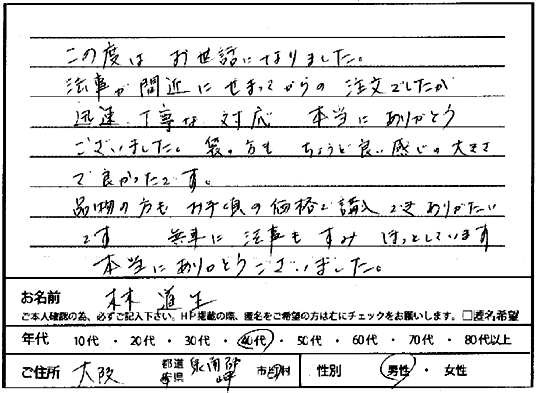 この度は お世話になりました。
法事が間近にせまってからの注文でしたが
迅速、丁寧な対応 本当にありがとう
ございました。袋の方も ちょうど良い感じの大きさ
で良かったです。
品物の方も お手頃の価格で購入でき ありがたい
です 無事に法事もすみ ほっとしています
本当にありがとうございました。
お名前 林 道生
ご本人確認の為、必ずご記入下さい。HP掲載の際、匿名をご希望の方はむにチェックをお願いします。□匿名希望
年代 10代・20代・30代・40代・50代・60代・70代・80代以上
ご住所 大阪 都道府県 泉南郡岬 市町村 性別 男性・女性